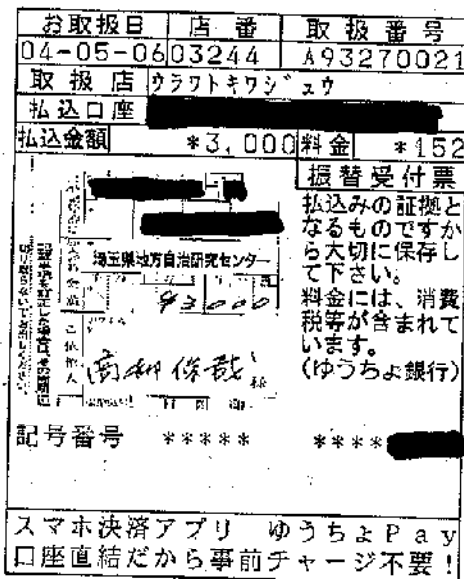 お取扱日 店番 取扱番号
04-05-06 03244 A93270021
取扱店 ウラワトキワジュウ
払込口座
払込金額 *3,000 料金 *152
振替受付票
払込みの証拠と
なるものですか
ら大切に保存し
て下さい。
料金には、消費
税等が含まれて
います。
(ゆうちょ銀行)
埼玉県地方自治研究センター
¥3000
ご依頼人
様
記号番号 ***** ****
スマホ決済アプリ ゆうちょPay
口座直結だから事前チャージ不要!